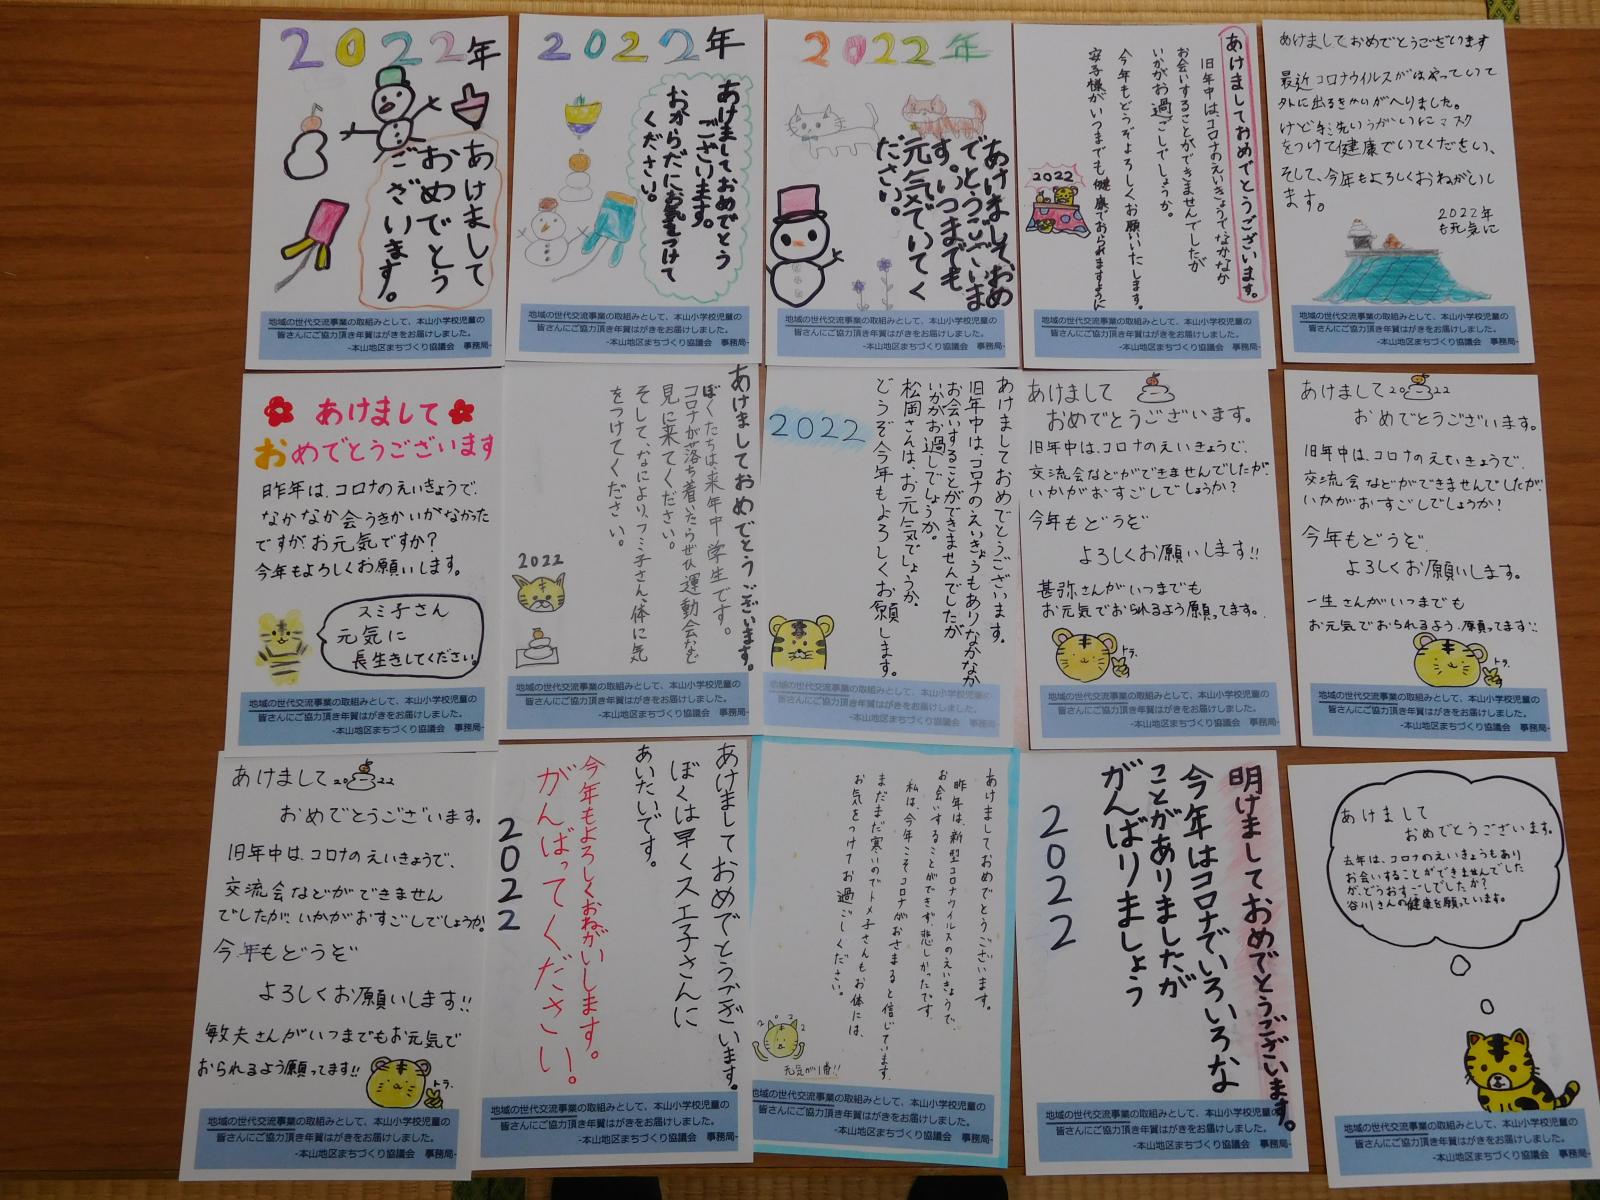 2022年
あけまして
おめでとう
ございます。
地域の世代交流事業の取組みとして、本山小学校児童の
皆さんにご協力頂き年賀はがきをお届けしました。
-本山地区まちづくり協議会　事務局-
2022年
あけましておめでとう
ございます。
おからだにお気をつけて
ください。
地域の世代交流事業の取組みとして、本山小学校児童の
皆さんにご協力頂き年賀はがきをお届けしました。
-本山地区まちづくり協議会　事務局-
2022年
あけまして、おめ
でとうございま
す。いつまでも
元気でいてく
ださい。
地域の世代交流事業の取組みとして、本山小学校児童の
皆さんにご協力頂き年賀はがきをお届けしました。
-本山地区まちづくり協議会　事務局-
あけましておめでとうございます。
旧年中は、コロナのえいきょうでなかなか
お会いすることができませんでしたが
いかがお過ごしでしょうか。
今年もどうぞよろしくお願いいたします。
安子様がいつまでも健康でおられますように
2022
地域の世代交流事業の取組みとして、本山小学校児童の
皆さんにご協力頂き年賀はがきをお届けしました。
-本山地区まちづくり協議会　事務局-
あけましておめでとうございます
最近コロナウイルスがはやっていて
外に出るきかいがへりました。
けど手洗いうがいにマスク
をつけて健康でいてください、
そして、今年もよろしくおねがいし
ます。
2022年
も元気に
地域の世代交流事業の取組みとして、本山小学校児童の
皆さんにご協力頂き年賀はがきをお届けしました。
-本山地区まちづくり協議会　事務局-
あけまして
おめでとうございます
昨年は、コロナのえいきょうで、
なかなか会うきかいがなかった
ですが、お元気ですか?
今年もよろしくお願いします。
スミ子さん
元気に
長生きしてください。
地域の世代交流事業の取組みとして、本山小学校児童の
皆さんにご協力頂き年賀はがきをお届けしました。
-本山地区まちづくり協議会　事務局-
あけましておめでとうございます。
ぼくたちは、来年中学生です。
コロナが落ち着いたらぜひ運動会など
見に来てください。
そして、なにより、フミ子さん、体に気
をつけてください。
2022
地域の世代交流事業の取組みとして、本山小学校児童の
皆さんにご協力頂き年賀はがきをお届けしました。
-本山地区まちづくり協議会　事務局-
あけましておめでとうございます。
旧年中は、コロナのえいきょうもありなかなか
お会いすることができませんでしたが
いかがお過しでしょうか。
松岡さんは、お元気でしょうか、
どうぞ今年もよろしくお願します。
2022
地域の世代交流事業の取組みとして、本山小学校児童の
皆さんにご協力頂き年賀はがきをお届けしました。
-本山地区まちづくり協議会　事務局-
あけまして
おめでとうございます。
旧年中は、コロナのえいきょうで、
交流会などができませんでしたが、
いかがおすごしでしょうか?
今年もどうぞ
よろしくお願いします!!
甚弥さんがいつまでも
お元気でおられるよう願ってます。
トラ。
地域の世代交流事業の取組みとして、本山小学校児童の
皆さんにご協力頂き年賀はがきをお届けしました。
-本山地区まちづくり協議会　事務局-
あけまして2022
おめでとうございます。
旧年中は、コロナのえいきょうで、
交流会などができませんでしたが、
いかがおすごしでしょうか?
今年もどうぞ
よろしくお願いします。
一生さんがいつまでも
お元気でおられるよう、願ってます!!
トラ。
地域の世代交流事業の取組みとして、本山小学校児童の
皆さんにご協力頂き年賀はがきをお届けしました。
-本山地区まちづくり協議会　事務局-
あけまして2022
おめでとうございます。
旧年中は、コロナのえいきょうで、
交流会などができません
でしたが、いかがおすごしでしょうか。
今年もどうぞ
よろしくお願いします!!
敏夫さんがいつまでもお元気で
おられるよう願ってます!!
トラ。
地域の世代交流事業の取組みとして、本山小学校児童の
皆さんにご協力頂き年賀はがきをお届けしました。
-本山地区まちづくり協議会　事務局-
あけましておめでとうございます。
ぼくは早くスエ子さんに
あいたいです。
今年もよろしくおねがいします。
がんばってください。
2022
地域の世代交流事業の取組みとして、本山小学校児童の
皆さんにご協力頂き年賀はがきをお届けしました。
-本山地区まちづくり協議会　事務局-
あけましておめでとうございます。
昨年は、新型コロナウイルスのえいきょうで、
お会いすることができず、悲しかったです。
私は、今年こそコロナがおさまると信じています。
まだまだ寒いのでトメ子さんもお体には、
お気をつけてお過ごしください。
2022
元気が1番!!
地域の世代交流事業の取組みとして、本山小学校児童の
皆さんにご協力頂き年賀はがきをお届けしました。
-本山地区まちづくり協議会　事務局-
明けましておめでとうございます。
今年はコロナでいろいろな
ことがありましたが
がんばりましょう
2022
地域の世代交流事業の取組みとして、本山小学校児童の
皆さんにご協力頂き年賀はがきをお届けしました。
-本山地区まちづくり協議会　事務局-
あけまして
おめでとうございます。
去年は、コロナのえいきょうもあり
お会いすることができませんでした
が、どうおすごしでしたか?
谷川さんの健康を願っています。
地域の世代交流事業の取組みとして、本山小学校児童の
皆さんにご協力頂き年賀はがきをお届けしました。
-本山地区まちづくり協議会　事務局-